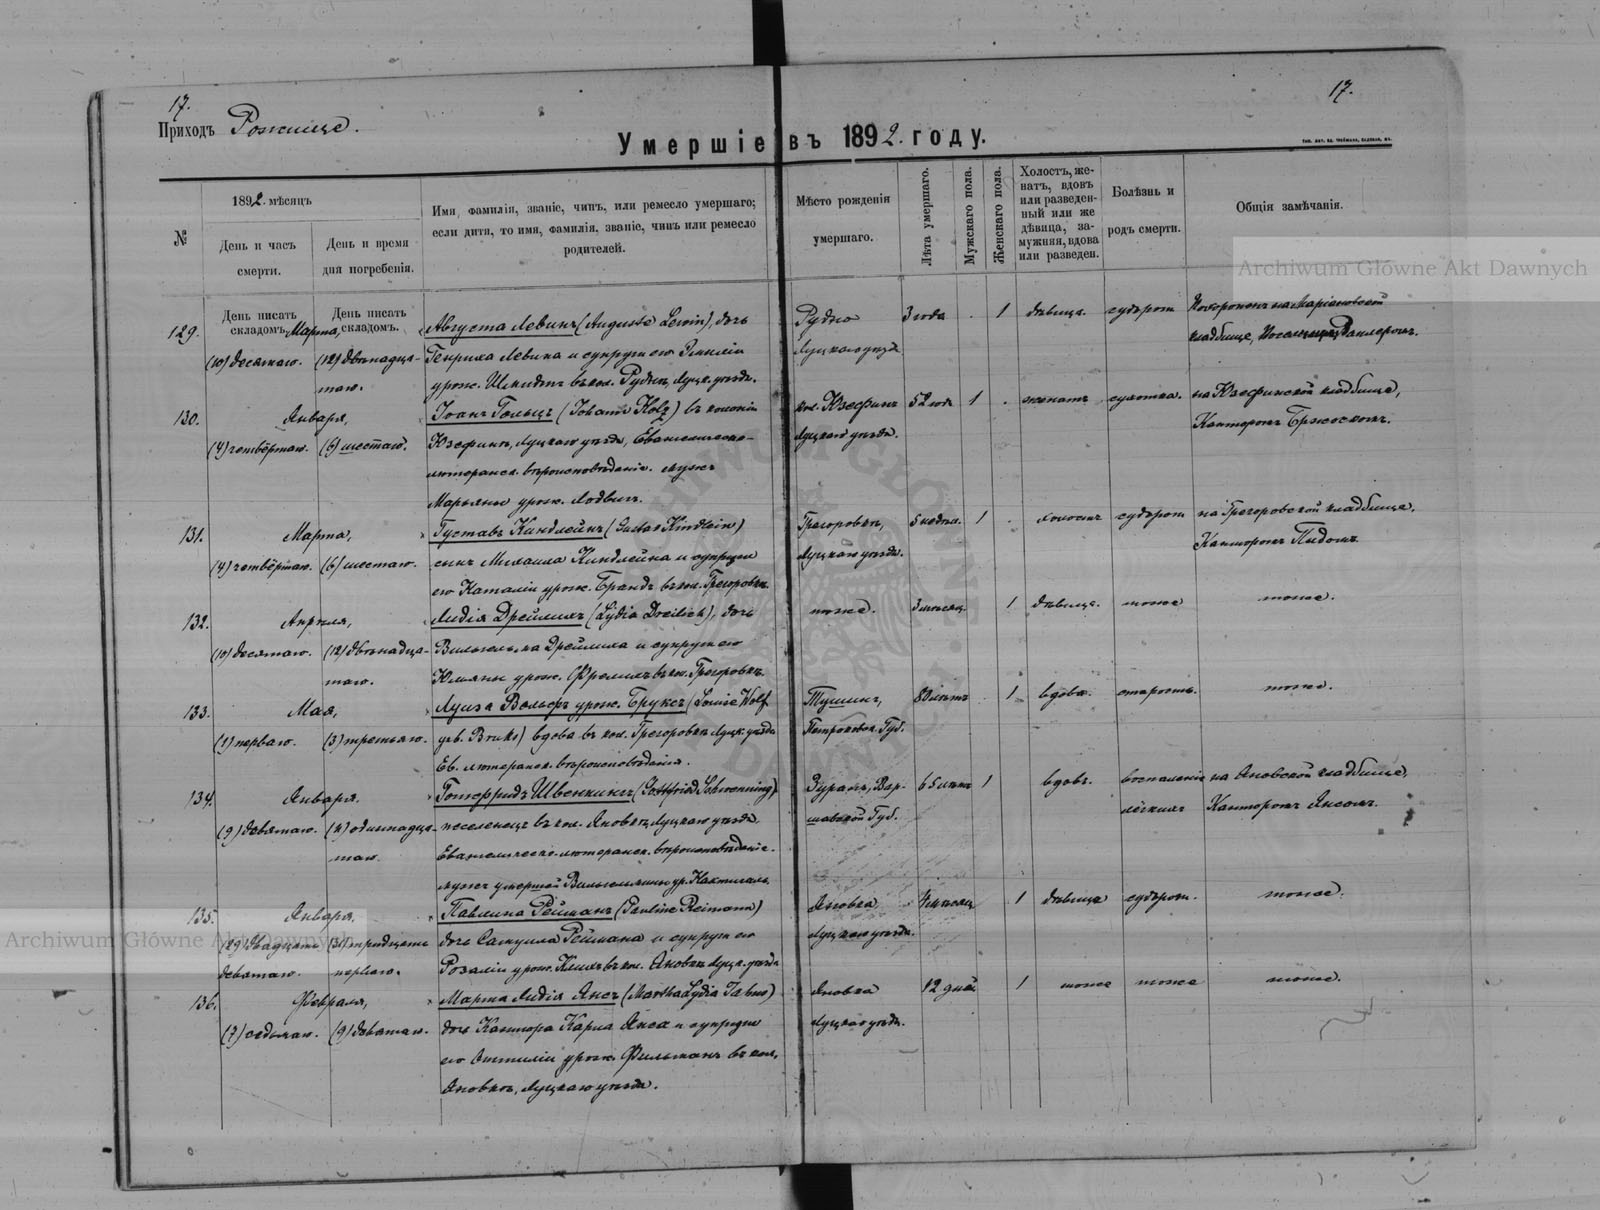 17.
17.
Приходъ Рожище.
Умершіе въ 1892. году.
№
1892. мѣсяцъ
День и часъ смерти.
День и время дня погребенія.
Имя, фамилія, званіе, чинъ, или ремесло умершаго;
если дитя, то имя, фамилія, званіе, чинъ или ремесло
родителей.
Мѣсто рожденія
умершаго.
Лѣта умершаго.
Мужскаго пола.
Женскаго пола.
Холостъ, же-
натъ, вдовъ
или разведен-
ный или же
дѣвица, за-
мужняя, вдова
или разведен.
Болѣзнь и
родъ смерти.
Общія замѣчанія.
Archiwum Główne Akt Dawnych
День писать складомъ.
День писать складомъ.
129. Марта, Августа Левинъ (Auguste Lewin), дочь Рудня 3 года . 1 дѣвица судорог Похороненъ на Маріановской
(10) десятаго. (12) двѣнадца- Генриха Левина и супруги его Эмиліи Луцкаго уѣзда кладбище,
таго. урож. Шмидтъ въ кол. Рудня, Луцк. уѣзда.
130. Января, Іоанъ Гольцъ (Johann Holz) въ колоніи кол. Юзефинъ 52 года 1 . женатъ сухотка. на Юзефинской кладбище,
(4) четвёртаго. (6) шестаго. Юзефинъ, Луцкаго уѣзда, Евангелическо- Луцкаго уѣзда. Канторомъ
лютеранск. вѣроисповѣданіе. мужъ
Марьяны урож. Людвигъ.
131. Марта, Густавъ Киндлейнъ (Gustav Kindlein) Грегоровка, 5 недѣль. 1 . холостъ судорог на Грегоровской кладбище,
(4) четвёртаго. (6) шестаго. сынъ Михаила Киндлейна и супруги Луцкаго уѣзда. Канторомъ
его Наталіи урож. Брандъ въ кол. Грегоровка.
132. Апрѣля, Лидія Дрейлихъ (Lydia Dreilich), дочь тоже. 3 мѣсяц. 1 дѣвица. тоже тоже.
(10) десятаго. (12) двѣнадца- Вильгельма Дрейлиха и супруги его
таго. Юльяны урож. въ кол. Грегоровка.
133. Мая, Луиза Вольфъ урож. Бруксъ (Louise Wolf Тушинъ, 80 лѣтъ 1 вдова. старость. тоже.
(1) перваго. (3) третьяго. вдова въ кол. Грегоровка Луцк. уѣзда Петроковск. Губ.
Ев. лютеранск. вѣроисповѣданія.
134. Января. Готфридъ Швеннингъ (Gottfried Schwenning) Вар- 65 лѣтъ 1 вдовъ. воспаленіе на Яновской кладбище,
(9) девятаго. (11) одиннадца- поселенецъ въ кол. Яновка, Луцкаго уѣзда. шавской Губ. лёгкихъ Канторомъ Янсомъ.
таго. Евангелическо-лютеранск. вѣроисповѣданіе.
мужъ умершей Вильгельмины ур. Нахтигаль.
135. Января. Павлина Рейманъ (Pauline Reimann) Яновка мѣсяц 1 дѣвица судорог. тоже.
Archiwum Główne Akt Dawnych
(29) двадцать (31) тридцать дочь Самуила Реймана и супруги его Луцкаго уѣзда.
девятаго. перваго. Розаліи урож. въ кол. Яновка Луцк. уѣзда
136. Февраля, Марта Лидія Янсъ (Martha Lydia Jahns) Яновка 12 дней 1 тоже тоже тоже.
(7) седьмаго. (9) девятаго. дочь Кантора Карла Янса и супруги Луцкаго уѣзда.
его Оттиліи урож. Фильманъ въ кол.
Яновка, Луцкаго уѣзда.